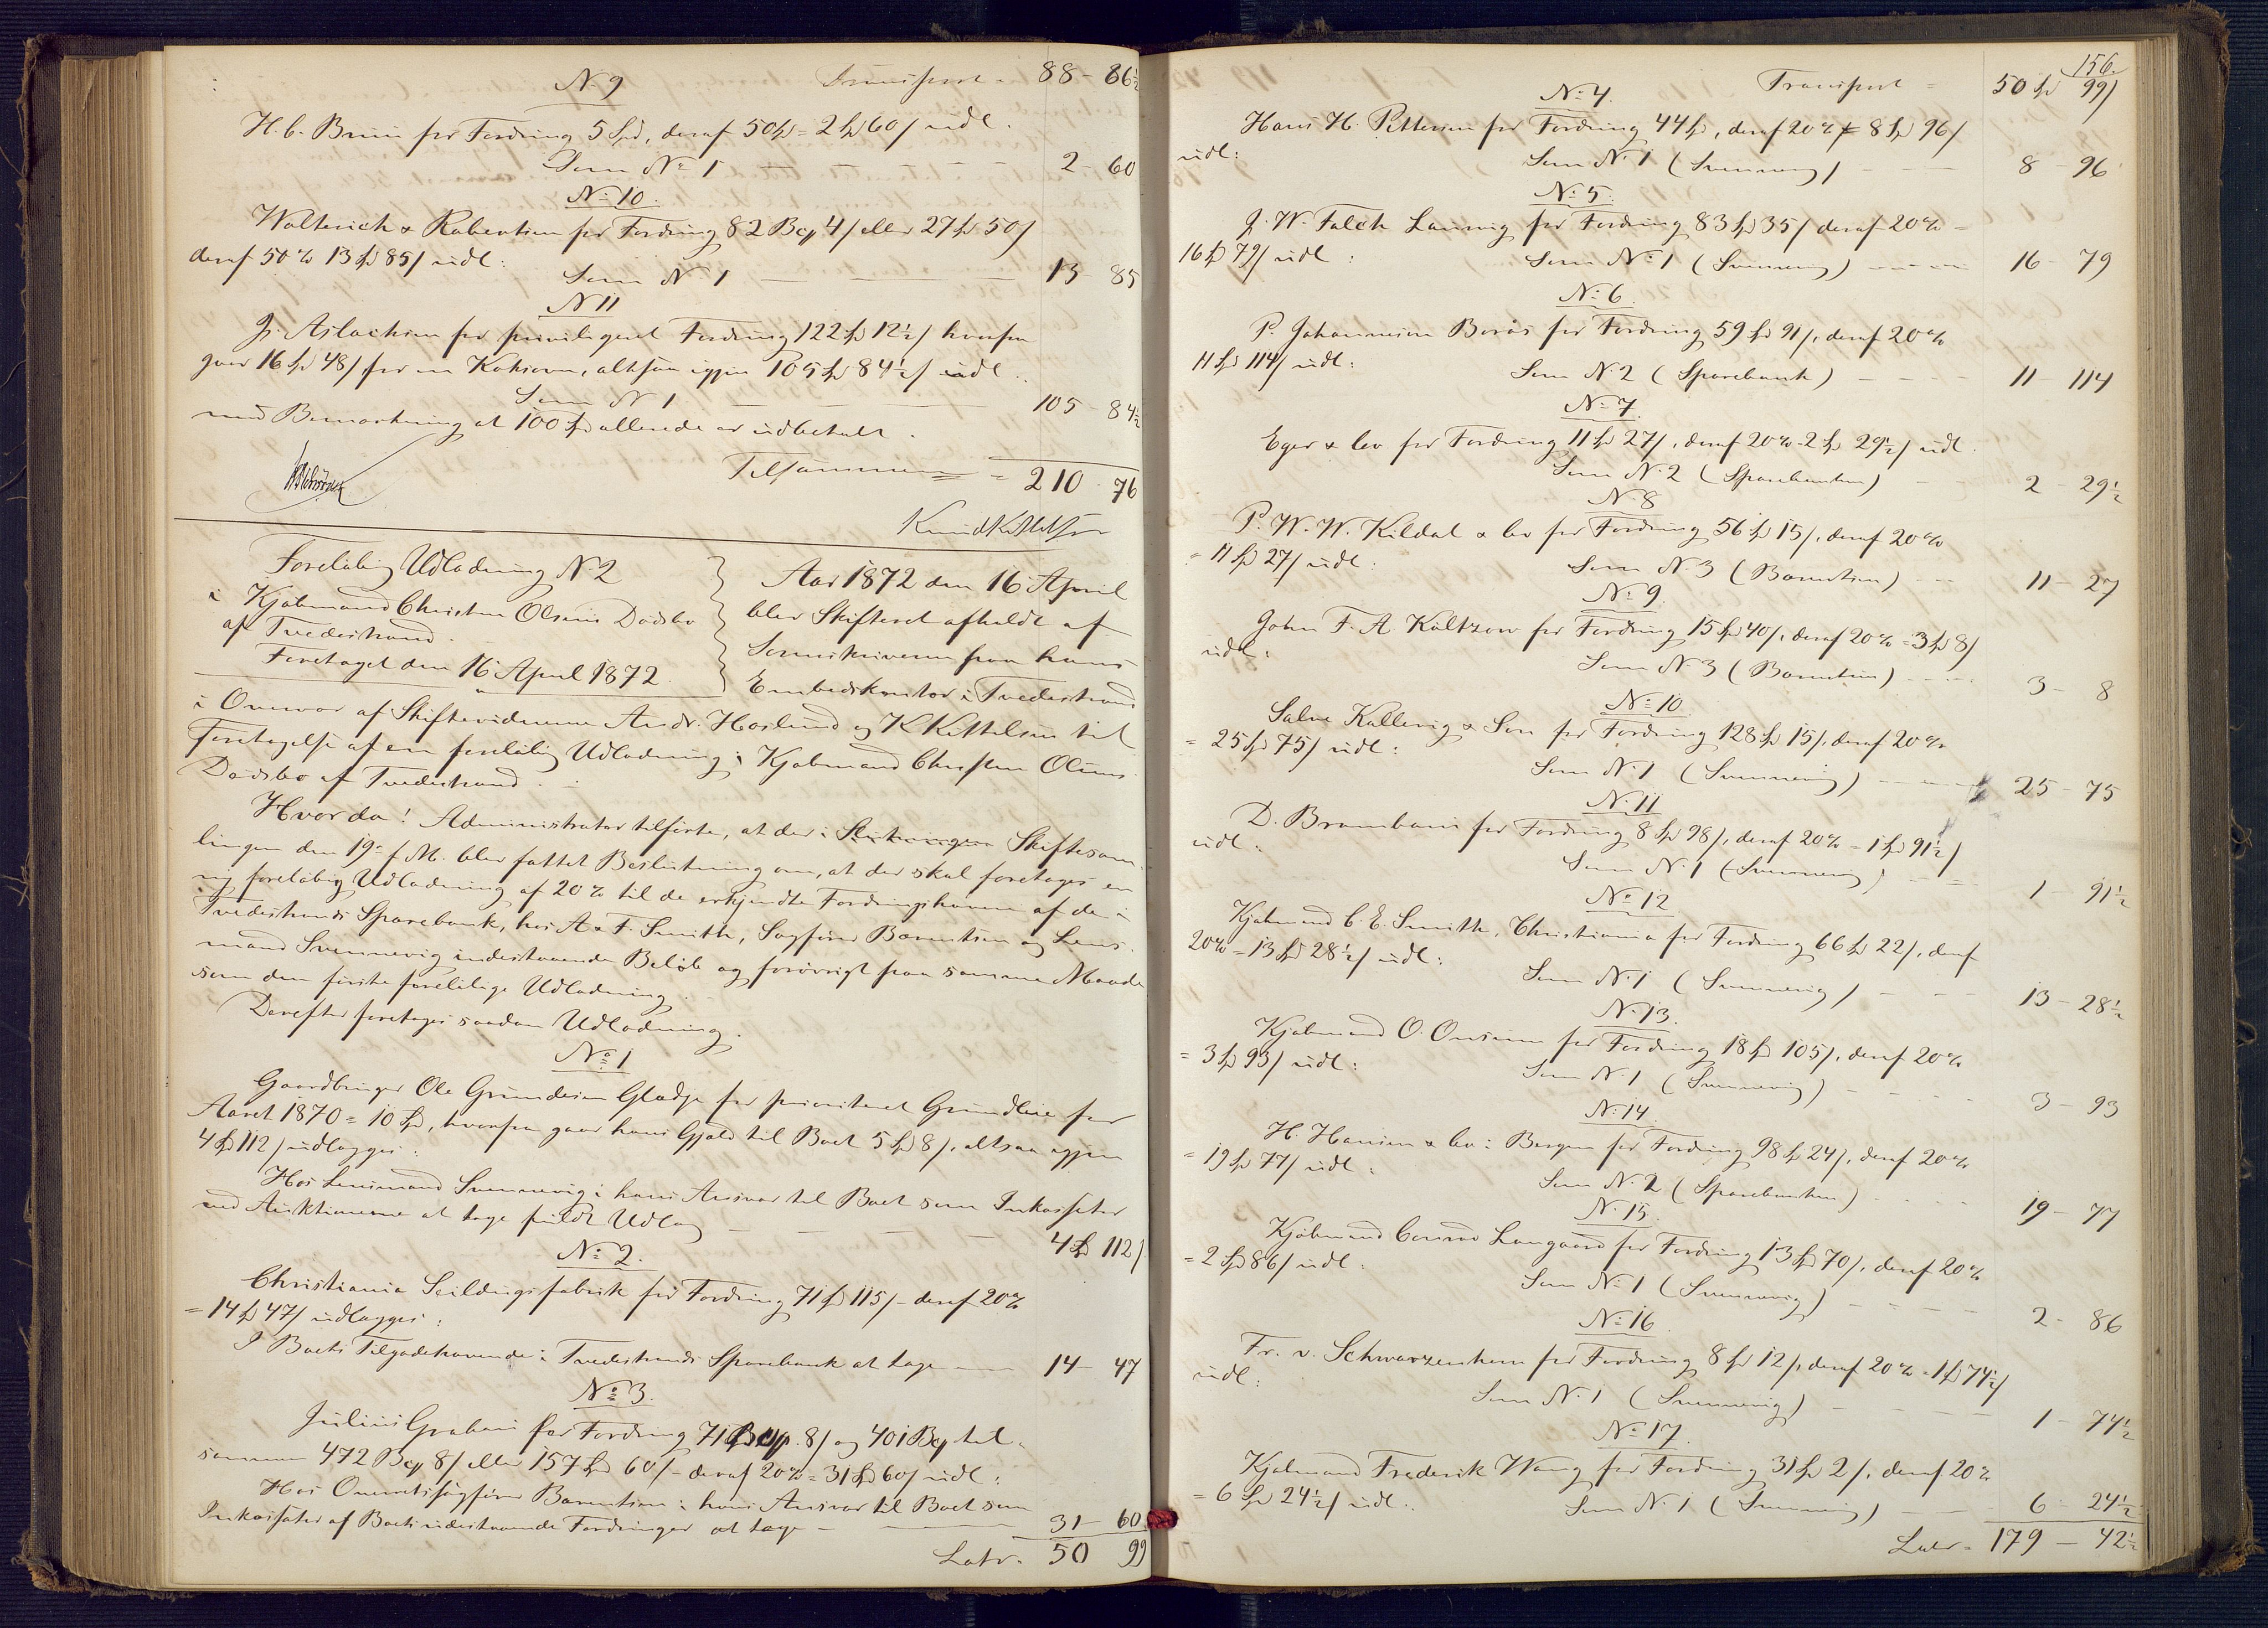 Nº 9 Transport = 88 - 86½
H. C. Bruun for Fordring 5 Spd, deraf 50% = 2 Spd 60 s udl.
Som Nº 1 — 2 - 60
Nº 10.
Wolterick & Robertsen for Fordring 82 Bcp 4 s eller 27 Spd 50 s
deraf 50% 13 Spd 85 s udl:
Som Nº 1 — 13 - 85
Nº 11
J. Aslaksen for privilegeret Fordring 122 Spd 12½ s hvorfra
gaar 16 Spd 48 s for en Kakovn, altsaa igjen 105 Spd 84½ s udl.
Som Nº 1 — 105 - 84½
med Bemærkning at 100 Spd allerede er udbetalt.
Tilsammen = 210 - 76
Knud Kittelsen
Foreløbig Udlodning Nº 2
i Kjøbmand Christen Olsens Dødsbo
af Tvedestrand.
Foretaget den 16 April 1872.
Aar 1872 den 16 April
blev Skifteret afholdt af
Sorenskriveren paa hans
Embedskontor i Tvedestrand
i Overvær af Skiftevidnerne Andr. Haslund og K Kittelsen til
Foretagelse af en foreløbig Udlodning i Kjøbmand Christen Olsens
Dødsbo af Tvedestrand. —
Hvorda! Administrator tilførte, at der i Skiftesam-
lingen den 19 f. M. blev fattet Beslutning om, at der skal foretages en
ny foreløbig Udlodning af 20% til de erkjendte Fordringshavere af de i
Tvedestrands Sparebank, hos A & F. Smith, Sagfører Barentsen og Lens-
mand Svennevig indestaaende Beløb og forøvrigt paa samme Maade
som den første foreløbige Udlodning.
Derefter foretages saadan Udlodning.
Nº 1
Gaardbruger Ole Gundersen Gladje for prioriteret Grundleie for
Aaret 1870 = 10 Spd, hvorfra gaar hans Gjæld til Boet 5 Spd 8 s, altsaa igjen
4 Spd 112 s udlægges:
Hos Lensmand Svennevig i hans Ansvar til Boet som Inkassator
ved Auktionerne at tage fuldt Udlæg — 4 Spd 112 s
Nº 2.
Christiania Seildugsfabrik for Fordring 71 Spd 115 s - deraf 20%
= 14 Spd 47 s udlægges:
I Boets Tilgodehavende i Tvedestrands Sparebank at tage — 14 - 47
Nº 3.
Julius Graban for Fordring 71 Bcp. 8 s og 401 Bcp til-
sammen 472 Bcp 8 s eller 157 Spd 60 s - deraf 20% = 31 Spd 60 s udl:
Hos Overretssagfører Barentsen i hans Ansvar til Boet som
Inkassator af Boets udestaaende Fordringer at tage — 31 - 60
Latr. 50 99
156.
Transport = 50 Spd 99 s
Nº 4.
Hans H. Pettersen for Fordring 44 Spd, deraf 20% = 8 Spd 96 s
udl:
Som Nº 1 (Svennevig) — 8 - 96
Nº 5.
J. W. Falck Laurvig for Fordring 83 Spd 35 s deraf 20% =
16 Spd 79 s udl:
Som Nº 1 (Svennevig) — 16 - 79
Nº 6.
P. Johannesen Borås for Fordring 59 Spd 91 s, deraf 20%
11 Spd 114 s udl:
Som Nº 2 (Sparebank) — 11 - 114
Nº 7.
Eger & Co for Fordring 11 Spd 27 s, deraf 20% = 2 Spd 29½ s udl.
Som Nº 2 (Sparebanken) 2 - 29½
Nº 8
P. W. W. Kildal & Co for Fordring 56 Spd 15 s, deraf 20%
= 11 Spd 27 s udl:
Som Nº 3 (Barentsen) — 11 - 27
Nº 9
John F. A. Koltzow for Fordring 15 Spd 40 s, deraf 20% = 3 Spd 8 s
udl:
Som Nº 3 (Barentsen) — 3 - 8
Nº 10.
Salve Kallevig & Søn for Fordring 128 Spd 15 s, deraf 20%
= 25 Spd 75 s udl:
Som Nº 1 (Svennevig) — 25 - 75
Nº 11
D. Brambani for Fordring 8 Spd 98 s, deraf 20% = 1 Spd 91½ s
udl:
Som Nº 1 (Svennevig) — 1 - 91½
Nº 12
Kjøbmand C. E. Smith, Christiania for Fordring 66 Spd 22 s, deraf
20% = 13 Spd 28½ s udl:
Som Nº 1 (Svennevig) — 13 - 28½
Nº 13.
Kjøbmand O. Onsum for Fordring 18 Spd 105 s, deraf 20%
= 3 Spd 93 s udl:
Som Nº 1 (Svennevig) — 3 - 93
Nº 14.
H. Hansen & Co i Bergen for Fordring 98 Spd 24 s, deraf 20%
= 19 Spd 77 s udl:
Som Nº 2 (Sparebanken) — 19 - 77
Nº 15.
Kjøbmand Conrad Langaard for Fordring 13 Spd 70 s, deraf 20%
= 2 Spd 86 s udl:
Som Nº 1 (Svennevig) — 2 - 86
Nº 16.
Fr. v. Schwarzenhorn for Fordring 8 Spd 12 s, deraf 20% = 1 Spd 74½ s
udl:
Som Nº 1 (Svennevig) — 1 - 74½
Nº 17.
Kjøbmand Frederik Wang for Fordring 31 Spd 2 s, deraf 20%
= 6 Spd 24½ s udl:
Som Nº 1 (Svennevig) — 6 - 24½
Latr = 179 - 42½